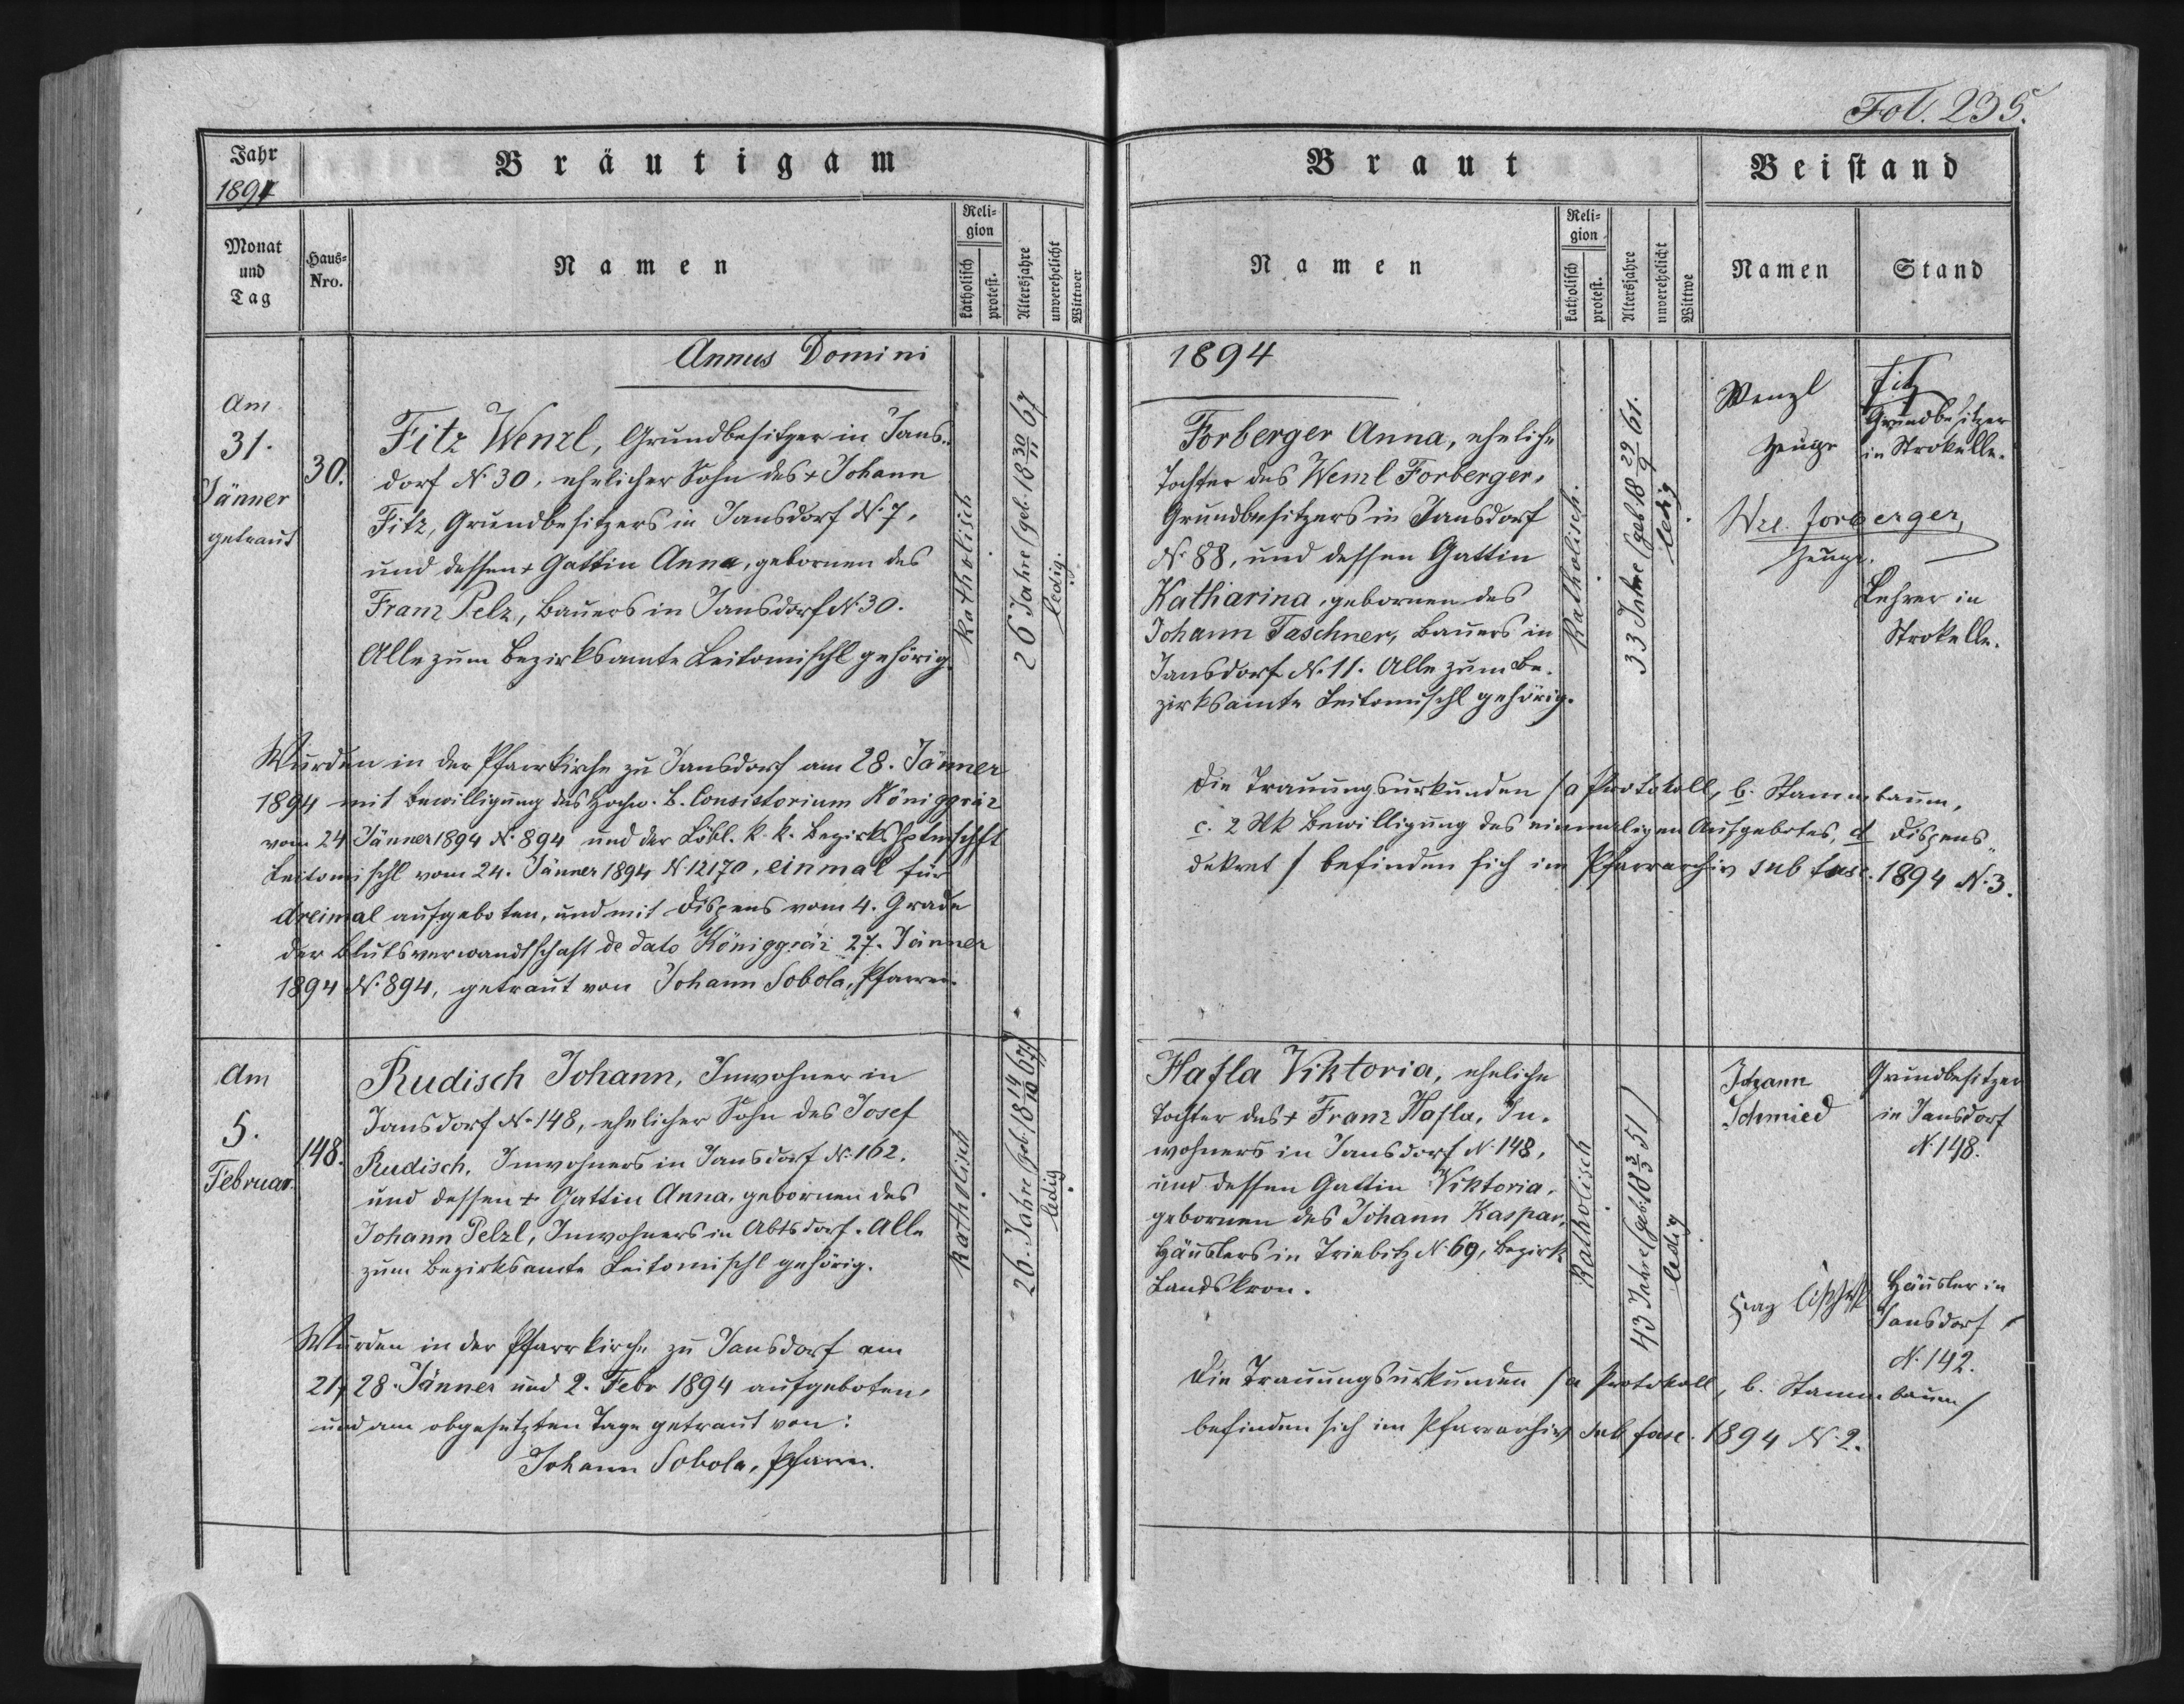 Fol. 235.
Jahr
1894
Bräutigam
Braut
Beistand
Monat
und
Tag
Haus-
Nro.
Namen
Reli-
gion
katholisch
protest.
Altersjahre
unverehelicht
Wittwer
Namen
Reli-
gion
katholisch
protest.
Altersjahre
unverehelicht
Wittwe
Namen
Stand
Annus Domini
1894
Am
31.
Jänner
getraut
30.
Fitz Wenzl, Grundbesitzer in Jans-
dorf N. 30, ehelicher Sohn des + Johann
Fitz, Grundbesitzers in Jansdorf N. 7,
und dessen + Gattin Anna, gebornen des
Franz Pelz, Bauers in Jansdorf N. 30.
Alle zum Bezirksamte Leitomischl gehörig.
Katholisch
26 Jahre (geb. 18 30/11 67
ledig.
Forberger Anna, eheliche
Tochter des Wenzl Forberger,
Grundbesitzers in Jansdorf
N. 88, und dessen Gattin
Katharina, gebornen des
Johann Taschner, Bauers in
Jansdorf N. 11. Alle zum Be-
zirksamte Leitomischl gehörig.
Katholisch.
33 Jahre (geb. 18 29/9 61.
ledig
Wenzl Fitz
Zeuge
Grundbesitzer
in Strokelle.
Wzl. Forberger,
Zeuge.
Lehrer in
Strokelle.
Wurden in der Pfarrkirche zu Jansdorf am 28. Jänner
1894 mit Bewilligung des Hochw. B. Consistorium Königgräz
vom 24 Jänner 1894 N. 894 und der Löbl. k. k. Bezirkshptmschft
Leitomischl vom 24. Jänner 1894 N 12170, einmal für
dreimal aufgeboten, und mit Dispens vom 4. Grade
der Blutsverwandtschaft de dato Königgräz 27. Jänner
1894 N. 894, getraut von Johann Sobola, Pfarrer.
Die Trauungsurkunden /a Protokoll, b. Stammbaum,
c. 2 Stk Bewilligung des einmaligen Aufgebotes, d Dispens„
dekret / befinden sich im Pfarrarchiv sub fasc. 1894 N. 3.
Am
5.
Februar.
148.
Rudisch Johann, Inwohner in
Jansdorf N. 148, ehelicher Sohn des Josef
Rudisch, Inwohners in Jansdorf N. 162,
und dessen + Gattin Anna, gebornen des
Johann Pelzl, Inwohners in Abtsdorf. Alle
zum Bezirksamte Leitomischl gehörig.
Katholisch
26. Jahre (geb. 18 14/10 67)
ledig
Hafla Viktoria, eheliche
Tochter des + Franz Hafla, In-
wohners in Jansdorf N. 148,
und dessen Gattin Viktoria,
gebornen des Johann Kaspar,
Häuslers in Triebitz N. 69, Bezirk
Landskron.
Katholisch
43 Jahre (geb. 18 3/3 51)
ledig
Johann
Schmied
Grundbesitzer
in Jansdorf
N. 148.
Häusler in
Jansdorf
N. 142.
Wurden in der Pfarrkirche zu Jansdorf am
21, 28. Jänner und 2. Febr 1894 aufgeboten,
und am obgesetzten Tage getraut von:
Johann Sobola, Pfarrer.
Die Trauungsurkunden /a Protokoll, b. Stammbaum/
befinden sich im Pfarrarchiv sub fasc. 1894 N. 2.